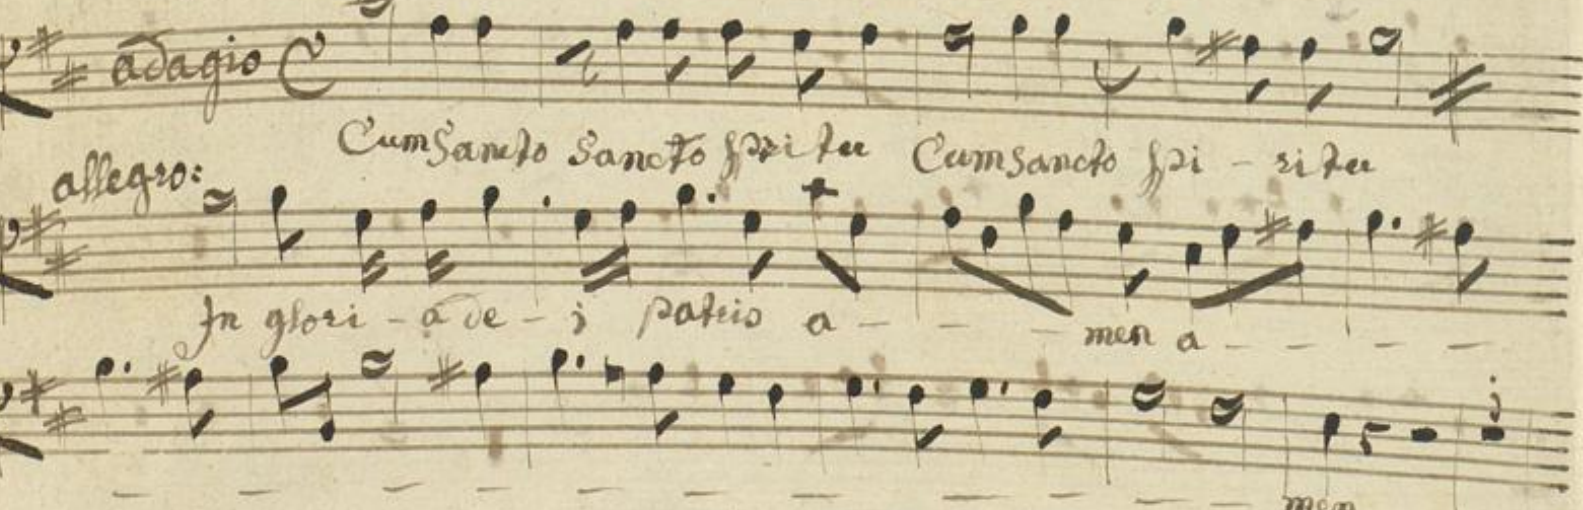 adagio
Cum Sancto Sancto spritu Cum sancto spi - ritu
allegro:
In glori - a de - i patris a - - - men a - - - - -
- - - - - - - - - - - men